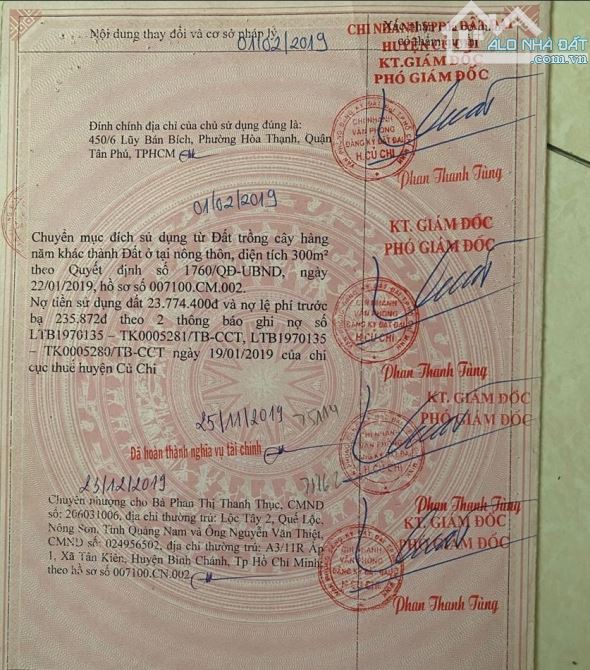 Nội dung thay đổi và cơ sở pháp lý
01/02/2019
HUYỆN CỦ CHI
KT.GIÁM ĐỐC
PHÓ GIÁM ĐỐC
ALO NHÀ ĐẤT
.com.vn
Đính chính địa chỉ của chủ sử dụng đúng là:
450/6 Lũy Bán Bích, Phường Hòa Thạnh, Quận
Tân Phú, TPHCM
CHI NHÁNH
VĂN PHÒNG
ĐĂNG KÝ ĐẤT ĐAI
H.CỦ CHI
Phan Thanh Tùng
01/02/2019
KT. GIÁM ĐỐC
PHÓ GIÁM ĐỐC
Chuyển mục đích sử dụng từ Đất trồng cây hàng
năm khác thành Đất ở tại nông thôn, diện tích 300m²
theo Quyết định số 1760/QĐ-UBND, ngày
22/01/2019, hồ sơ số 007100.CM.002.
Nợ tiền sử dụng đất 23.774.400đ và nợ lệ phí trước
bạ 235.872đ theo 2 thông báo ghi nợ số
LTB1970135 – TK0005281/TB-CCT, LTB1970135
– TK0005280/TB-CCT ngày 19/01/2019 của chi
cục thuế huyện Củ Chi
CHI NHÁNH
VĂN PHÒNG
ĐĂNG KÝ ĐẤT ĐAI
H.CỦ CHI
Phan Thanh Tùng
25/11/2019
KT. GIÁM ĐỐC
PHÓ GIÁM ĐỐC
Đã hoàn thành nghĩa vụ tài chính
CHI NHÁNH
VĂN PHÒNG
ĐĂNG KÝ ĐẤT ĐAI
H.CỦ CHI
Phan Thanh Tùng
23/12/2019
KT. GIÁM ĐỐC
PHÓ GIÁM ĐỐC
Chuyển nhượng cho Bà Phan Thị Thanh Thục, CMND
số: 266031006, địa chỉ thường trú: Lộc Tây 2, Quế Lộc,
Nông Sơn, Tỉnh Quảng Nam và Ông Nguyễn Văn Thiệt,
CMND số: 024956502, địa chỉ thường trú: A3/11R Ấp
1, Xã Tân Kiên, Huyện Bình Chánh, Tp Hồ Chí Minh;
theo hồ sơ số 007100.CN.002
CHI NHÁNH
VĂN PHÒNG
ĐĂNG KÝ ĐẤT ĐAI
H.CỦ CHI
Phan Thanh Tùng